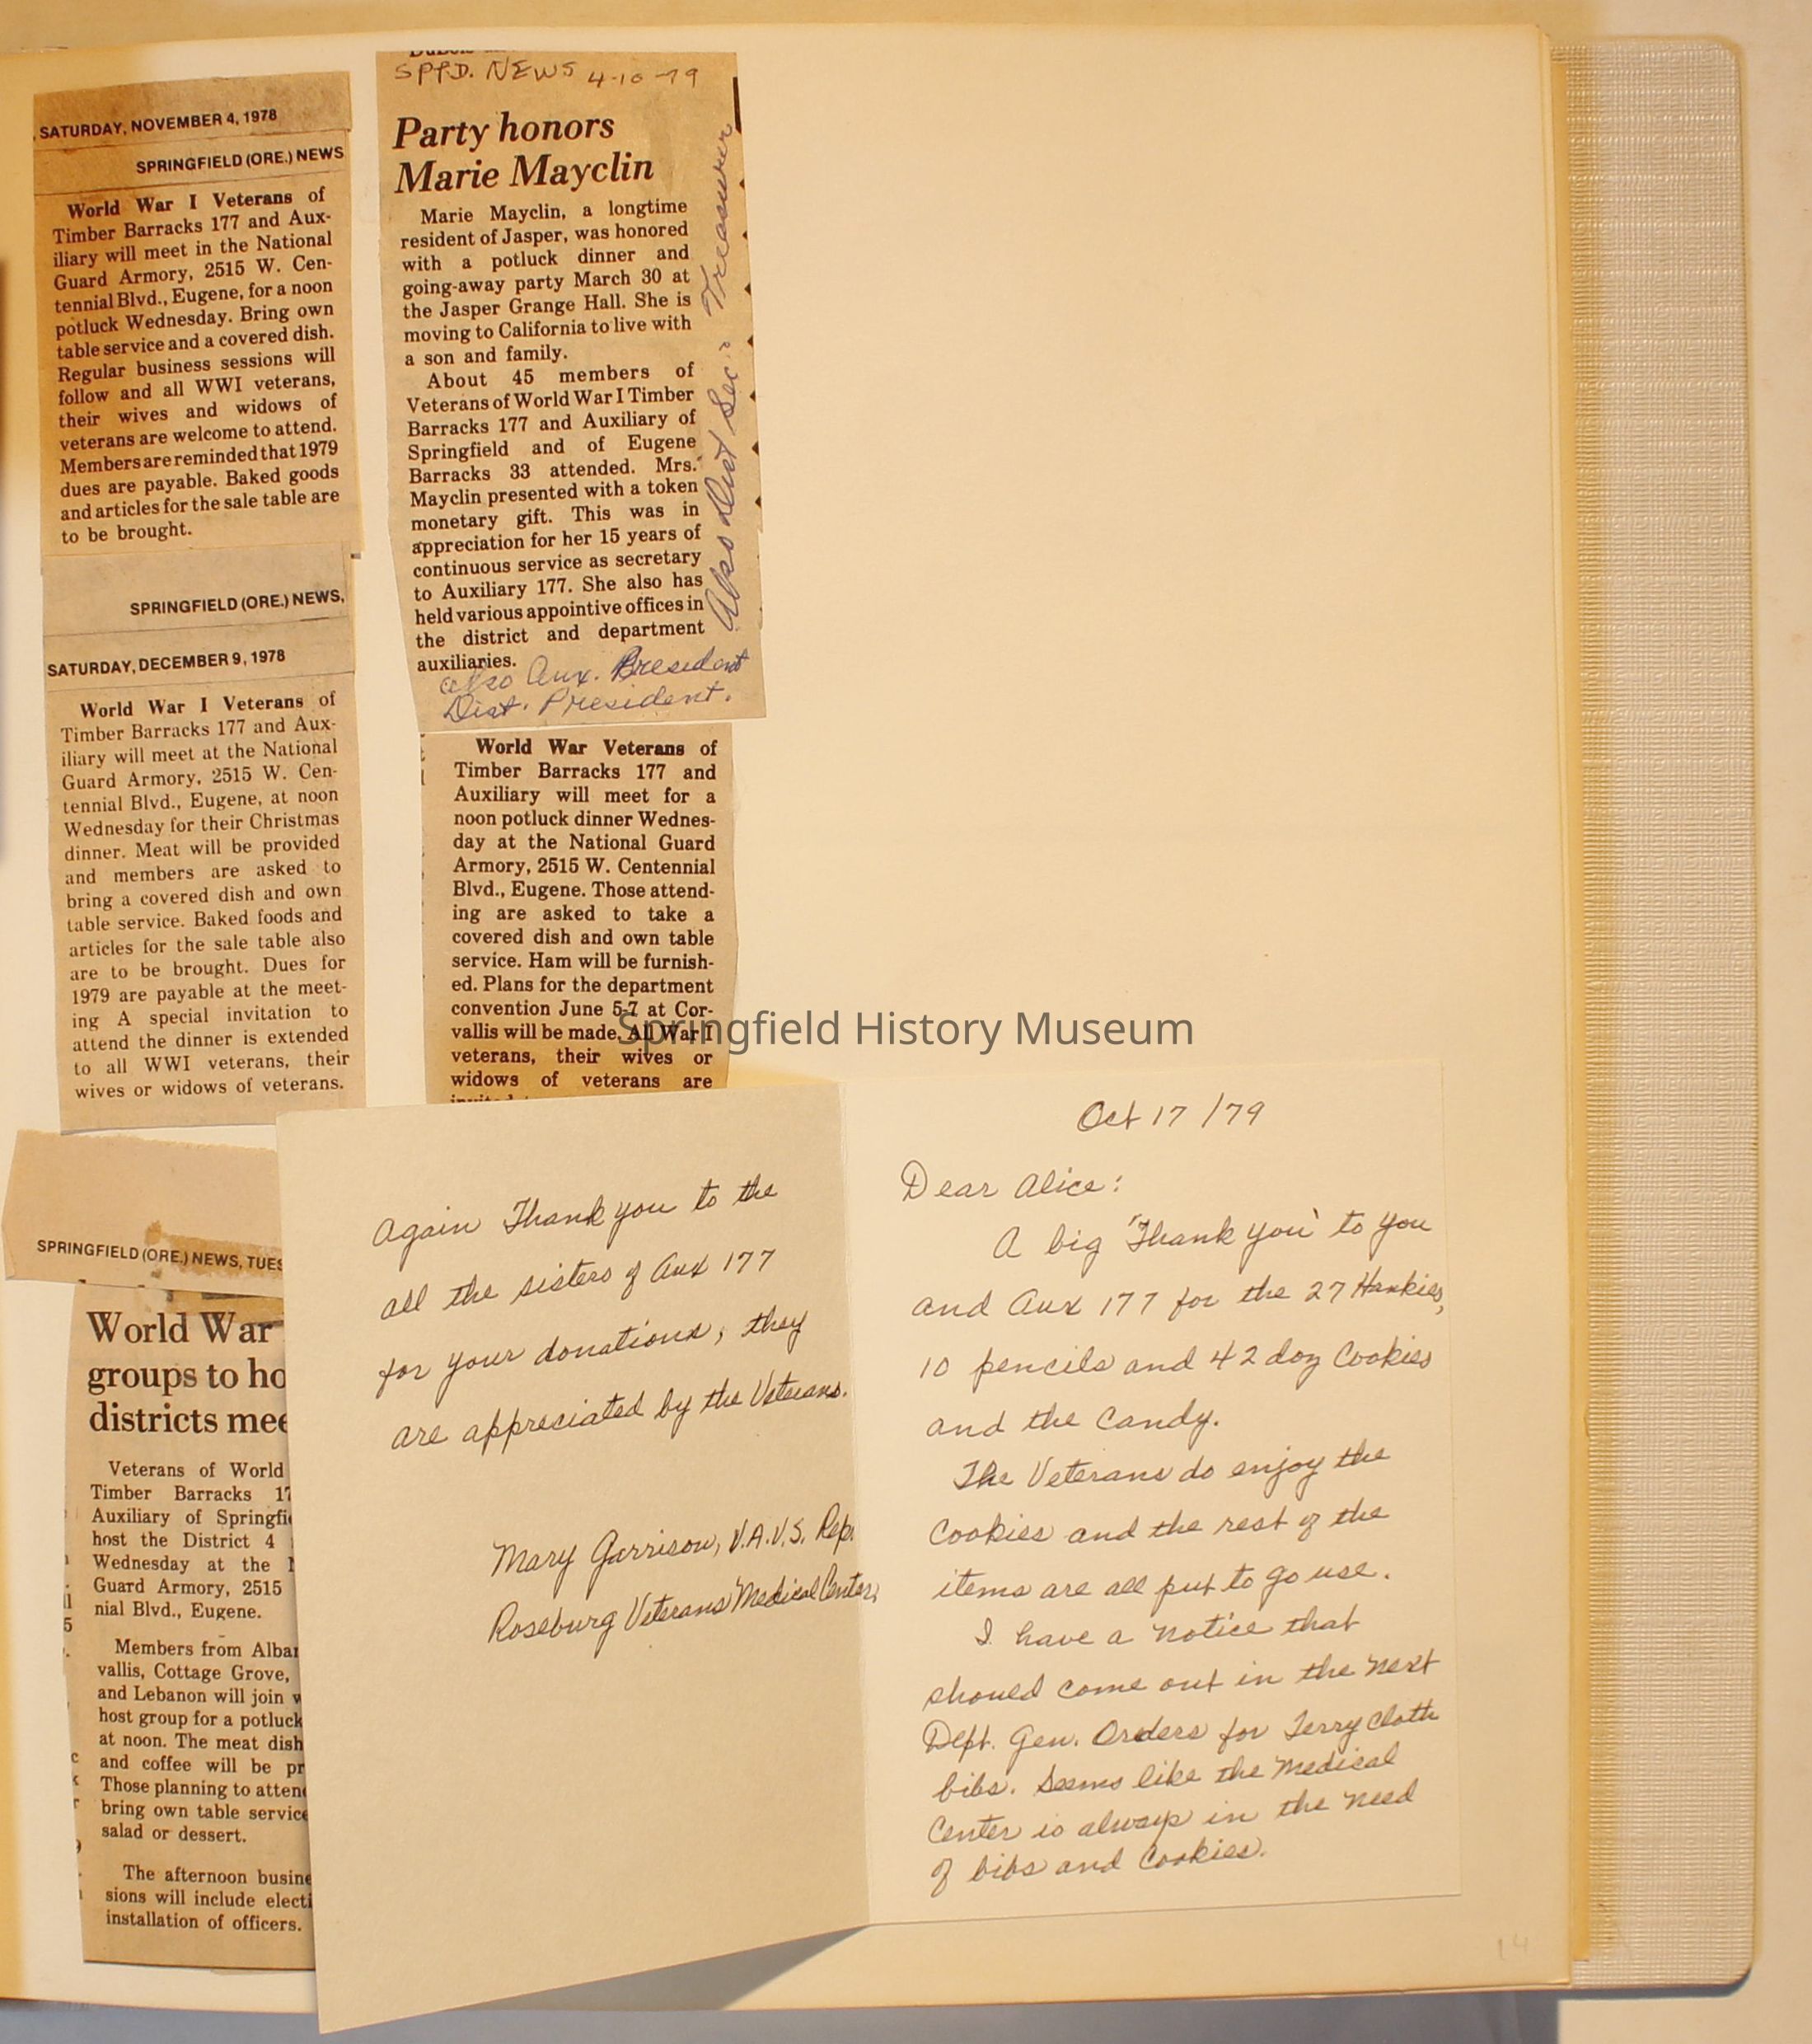 , SATURDAY, NOVEMBER 4, 1978
SPRINGFIELD (ORE.) NEWS
World War I Veterans of
Timber Barracks 177 and Aux-
iliary will meet in the National
Guard Armory, 2515 W. Cen-
tennial Blvd., Eugene, for a noon
potluck Wednesday. Bring own
table service and a covered dish.
Regular business sessions will
follow and all WWI veterans,
their wives and widows of
veterans are welcome to attend.
Members are reminded that 1979
dues are payable. Baked goods
and articles for the sale table are
to be brought.
SPRINGFIELD (ORE.) NEWS,
SATURDAY, DECEMBER 9, 1978
World War I Veterans of
Timber Barracks 177 and Aux-
iliary will meet at the National
Guard Armory, 2515 W. Cen-
tennial Blvd., Eugene, at noon
Wednesday for their Christmas
dinner. Meat will be provided
and members are asked to
bring a covered dish and own
table service. Baked foods and
articles for the sale table also
are to be brought. Dues for
1979 are payable at the meet-
ing A special invitation to
attend the dinner is extended
to all WWI veterans, their
wives or widows of veterans.
SPRINGFIELD (ORE.) NEWS, TUES
World War
groups to ho
districts mee
Veterans of World
Timber Barracks 17
Auxiliary of Springfie
host the District 4
Wednesday at the N
Guard Armory, 2515
nial Blvd., Eugene.
Members from Alban
vallis, Cottage Grove,
and Lebanon will join w
host group for a potluck
at noon. The meat dish
and coffee will be pr
Those planning to attend
bring own table service
salad or dessert.
The afternoon busine
sions will include electi
installation of officers.
SPFD. NEWS 4-10-79
Party honors
Marie Mayclin
Marie Mayclin, a longtime
resident of Jasper, was honored
with a potluck dinner and
going-away party March 30 at
the Jasper Grange Hall. She is
moving to California to live with
a son and family.
About 45 members of
Veterans of World War I Timber
Barracks 177 and Auxiliary of
Springfield and of Eugene
Barracks 33 attended. Mrs.
Mayclin presented with a token
monetary gift. This was in
appreciation for her 15 years of
continuous service as secretary
to Auxiliary 177. She also has
held various appointive offices in
the district and department
auxiliaries.
also Aux. President
Dist. President.
Also Dist Sec. Treasurer
World War Veterans of
Timber Barracks 177 and
Auxiliary will meet for a
noon potluck dinner Wednes-
day at the National Guard
Armory, 2515 W. Centennial
Blvd., Eugene. Those attend-
ing are asked to take a
covered dish and own table
service. Ham will be furnish-
ed. Plans for the department
convention June 5-7 at Cor-
vallis will be made. All War I
veterans, their wives or
widows of veterans are
Springfield History Museum
Again Thank you to the
all the sisters of Aux 177
for your donations, they
are appreciated by the Veterans.
Mary Garrison, V.A.V.S. Rep.
Roseburg Veterans Medical Center,
Oct 17 /79
Dear Alice:
A big "Thank you" to you
and Aux 177 for the 27 Hankies,
10 pencils and 42 doz Cookies
and the Candy.
The Veterans do enjoy the
Cookies and the rest of the
items are all put to go use.
I have a notice that
should come out in the next
Dept. Gen. Orders for Terry Cloth
bibs. Seems like the Medical
Center is always in the need
of bibs and Cookies.
14